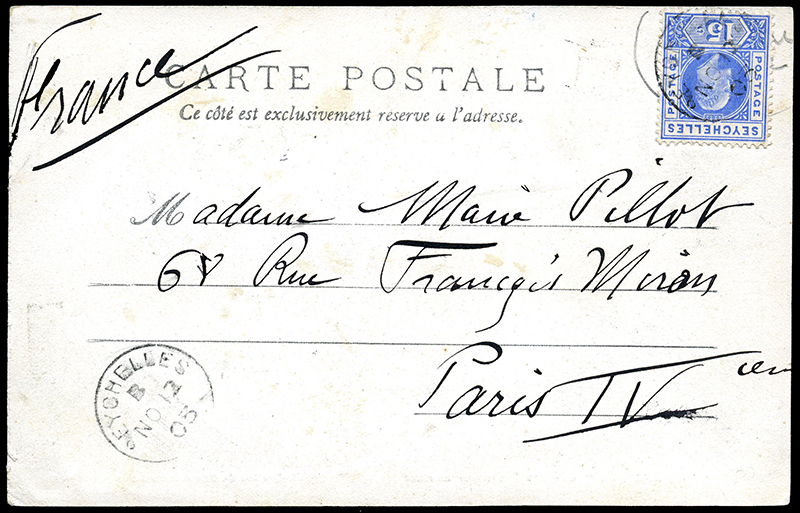 France
CARTE POSTALE
Ce côté est exclusivement reserve a l'adresse.
15
POSTAGE
POSTAGE
SEYCHELLES
Madame Marie Pillot
68 Rue François Miron
Paris IV em
SEYCHELLES
B
NO 12
03